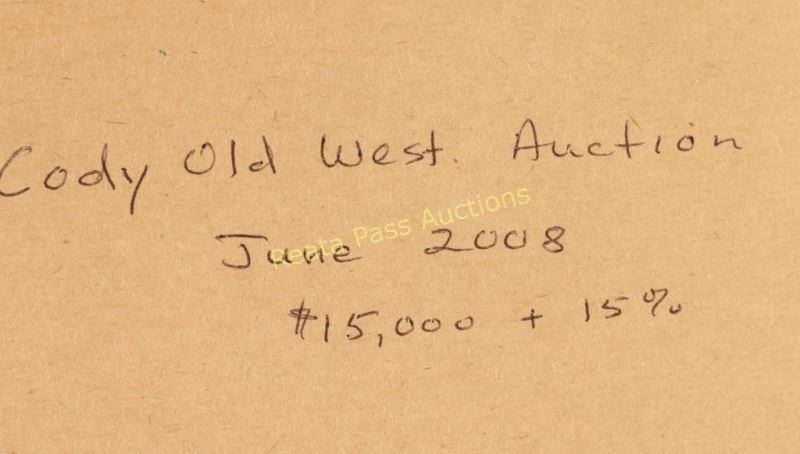 Cody Old West. Auction
June 2008
Reata Pass Auctions
$15,000 + 15%